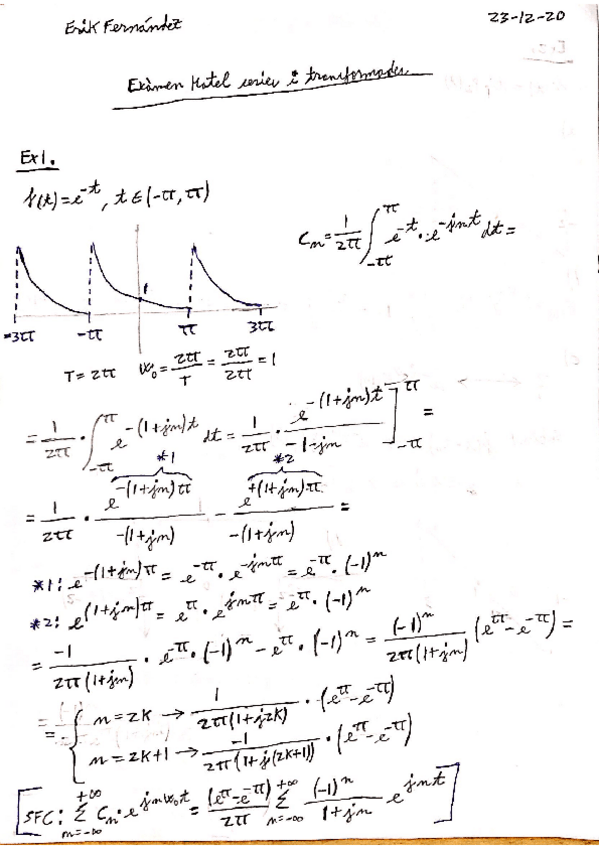 Erik Fernández
23-12-20
Exàmen Hotel series i transformades.
Ex1.
f(t)=e^-t, t∈(-π, π)
Cn = 1/2π ∫_-π^π e^-t · e^-jnt dt =
1
-3π -π π 3π
T=2π W₀ = 2π/T = 2π/2π = 1
= 1/2π · ∫_-π^π e^-(1+jn)t dt = 1/2π · e^-(1+jn)t / -1-jn ]_-π^π =
*1 *2
= 1/2π · e^-(1+jn)π / -(1+jn) - e^+(1+jn)π / -(1+jn) =
*1: e^-(1+jn)π = e^-π · e^-jnπ = e^-π · (-1)^n
*2: e^(1+jn)π = e^π · e^jnπ = e^π · (-1)^n
= -1/2π(1+jn) · e^-π · (-1)^n - e^π · (-1)^n = (-1)^n/2π(1+jn) (e^π - e^-π) =
= { n=2K → 1/2π(1+j2K) · (e^π - e^-π)
n=2K+1 → -1/2π(1+j(2K+1)) · (e^π - e^-π)
[SFC: Σ_n=-∞^+∞ Cn · e^jnW₀t = (e^π - e^-π)/2π Σ_n=-∞^+∞ (-1)^n/1+jn e^jnt]